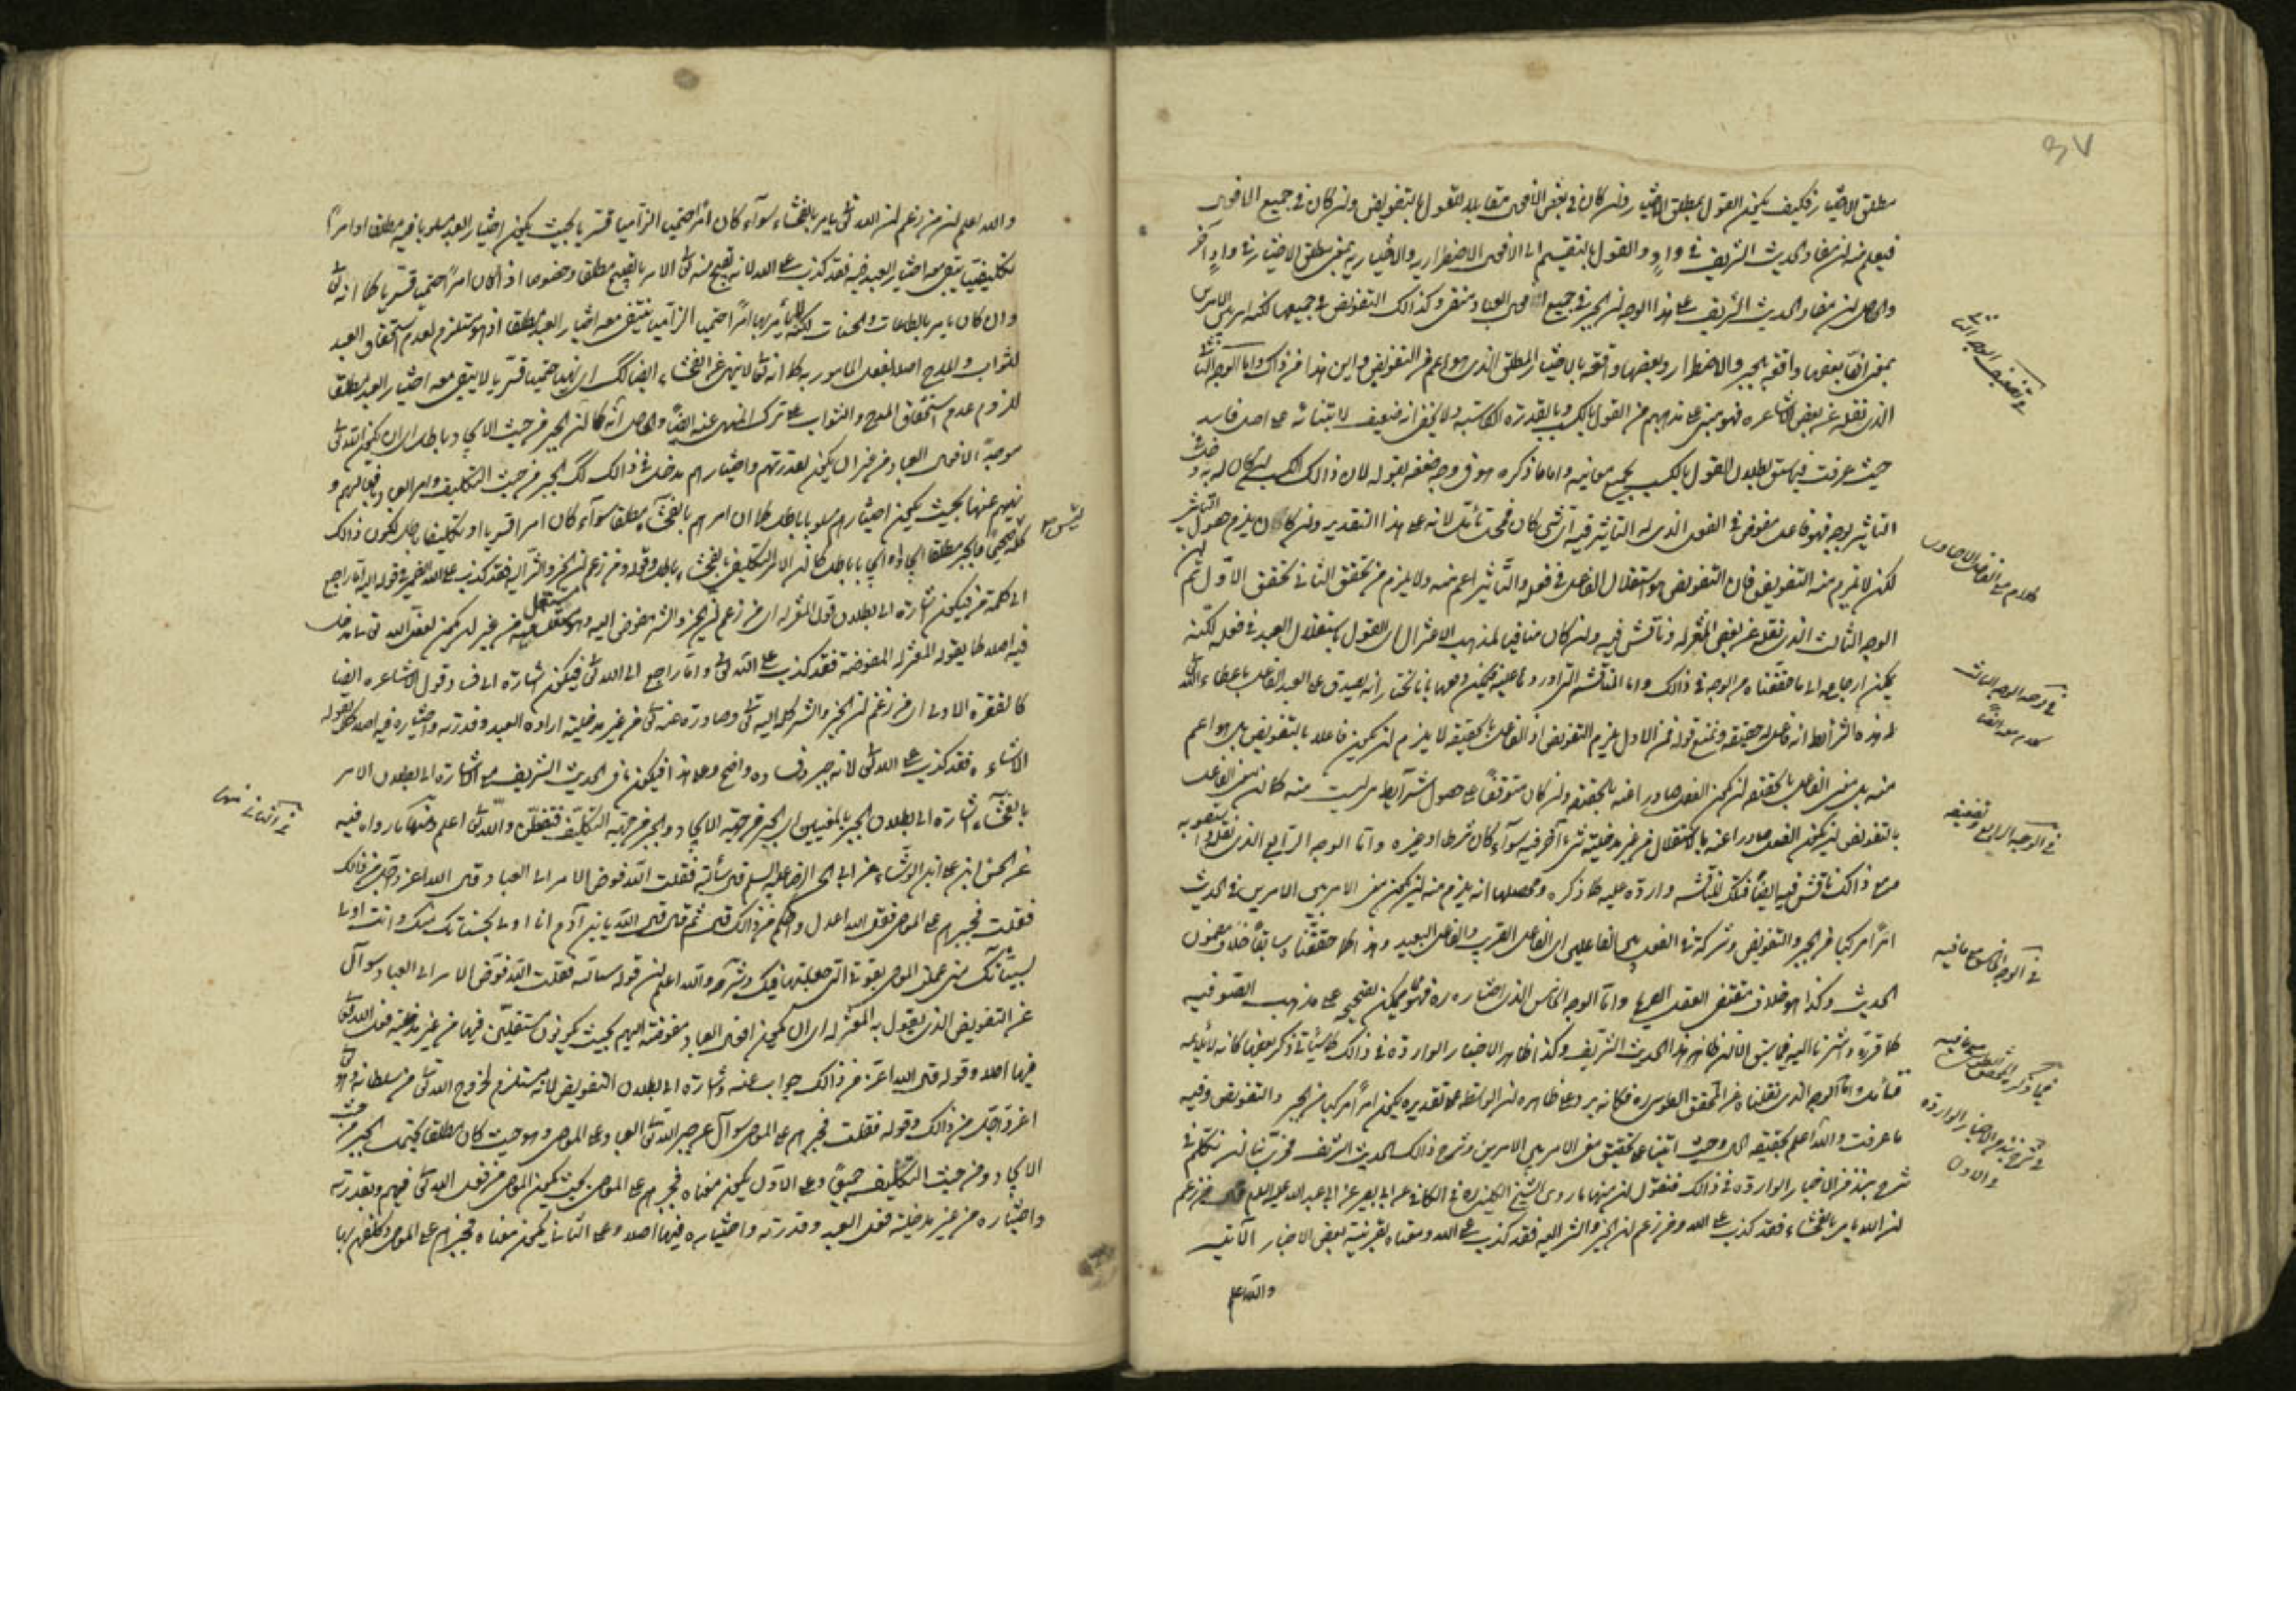 ٣٧
مطلق الاختيار فكيف يكون القول بمطلق الاختيار وان كان في بعض الافعال مقابلا للقول بالتفويض وان كان في جميع الافعال
فيعلم منه ان مفاد الحديث الشريف في وادٍ والقول بالتقسيم الى الافعال الاضطرارية والاختيارية بمعنى مطلق الاختيار في وادٍ آخر
والحاصل ان مفاد الحديث الشريف على هذا الوجه ان الجبر في جميع افعال العباد منفى وكذلك التفويض في جميعها لكنه امر بين الامرين
بمعنى ان بعضها واقعة بالجبر والاضطرار وبعضها واقعة بالاختيار المطلق الذى هو اعم من التفويض واين هذا من ذاك واما الوجه الثانى
الذى نقله عن بعض الاشاعره فهو مبنى على مذهبهم من القول بالكسب وبالقدرة الكاسبة ولا يخفى انه ضعيف لابتنائه على اصل فاسد
حيث عرفت فيما سبق بطلان القول بالكسب بجميع معانيه واما ما ذكره هو في وجه ضعفه بقوله لان ذلك الكسب ان كان له
التأثير بوجه فهو فاعل مفوض في الفعل الذى له التأثير فيه اى شئ كان فمحل تأمل لانه على هذا التقدير وان كان يلزم حصول التأثير
لكن لا يلزم منه التفويض فان التفويض هو استقلال الفاعل في فعله والتأثير اعم منه ولا يلزم من تحقق الثانى تحقق الاول ثم ان
الوجه الثالث الذى نقله عن بعض المعتزله وناقش فيه وان كان منافيا لمذهب الاعتزال اى القول باستقلال العبد في فعله لكنه
يمكن ارجاعه الى ما حققناه من الوجه في ذلك واما المناقشة التى اوردها عليه فيمكن دفعها بانا نختار انه يصدق على العبد الفاعل باعطاء الله تعالى
له هذه الشرائط انه فاعل له حقيقة ونمنع قوله فمن الاول يلزم التفويض اذ الفاعل بالحقيقة لا يلزم ان يكون فاعلا بالتفويض بل هو اعم
منه بل معنى الفاعل بالحقيقة ان يكون الفعل صادرا عنه بالحقيقة وان كان متوقفا على حصول شرائط ليست منه كما ان معنى الفاعل
بالتفويض ان يكون الفعل صادرا عنه بالاستقلال من غير مدخلية شئ آخر فيه سواء كان شرطا او غيره واما الوجه الرابع الذى نقله
مع ذلك ناقش فيه ايضا فتلك المناقشة واردة عليه كما ذكره ومحصلها انه يلزم منه ان يكون معنى الامر بين الامرين في الحديث
امرا مركبا من الجبر والتفويض وشركة في الفعل بين الفاعلين اى الفاعل القريب والفاعل البعيد وهذا كما حققناه سابقا خلاف مضمون
الحديث وكذا هو خلاف مقتضى العقل الصريح واما الوجه الخامس الذى اختاره ره فهو مما يمكن تصحيحه على مذهب الصوفيه
كما قررته واشرنا اليه فيما سبق الا ان ظاهر هذا الحديث الشريف وكذا ظاهر الاخبار الواردة في ذلك كما سيأتى ذكر بعضها كانه لا يلايمه
فتأمل واما الوجه الذى نقلناه عن المحقق الطوسى ره فكانه يرد على ظاهره ان الواسطة على تقديره يكون امرا مركبا من الجبر والتفويض وفيه
ما عرفت والله اعلم بحقيقة الحال وحيث اتينا على تحقيق معنى الامر بين الامرين وشرح ذلك الحديث الشريف فحرى بنا ان نتكلم في
شرح نبذ من الاخبار الواردة في ذلك فنقول ان منها ما روى الشيخ الكلينى ره في الكافى عن ابى بصير عن ابى عبد الله عليه السلم قال من زعم
ان الله يامر بالفحشاء فقد كذب على الله ومن زعم ان الخير والشر اليه فقد كذب على الله ومعناه بقرينة بعض الاخبار الآتيه
والله اعلم
في تضعيف الوجه الثانى
كلام مع الفاضل
في توجيه الوجه الثالث
كلام معه ايضا
في الوجه الرابع وتضعيفه
في الوجه الخامس وما فيه
فيما ذكره المحقق الطوسى وما فيه
في شرح نبذ من الاخبار الواردة
والاول
والله اعلم ان من زعم ان الله تعالى يامر بالفحشاء سواء كان امرا حتميا الزاميا قسريا بحيث يكون اختيار العبد مسلوبا فيه مطلقا او امرا
تكليفيا يبقى معه اختيار العبد فيه فقد كذب على الله لانه يقبح منه تعالى الامر بالقبيح مطلقا وخصوصا اذا كان امرا حتميا قسريا كما انه تعالى
وان كان يامر بالطاعات والحسنات لكنه لم يأمر بها امرا حتميا الزاميا ينتفى معه اختيار العبد مطلقا اذ هو مستلزم لعدم استحقاق العبد
للثواب والمدح اصلا بفعل المامور به كما انه تعالى لا ينهى عن الفحشاء ايضا كك اى نهيا حتميا قسريا لا يبقى معه اختيار العبد مطلقا
للزوم عدم استحقاق المدح والثواب على ترك المنهى عنه ايضا والحاصل انه كما ان الجبر من حيث الايجاد باطل اى ان يكون الله تعالى
موجدا لافعال العباد من غير ان يكون لقدرتهم واختيارهم مدخل في ذلك كك الجبر من حيث التكليف وامر العباد بافعالهم و
نهيهم عنها بحيث يكون اختيارهم مسلوبا باطل كما ان امرهم بالفحشاء مطلقا سواء كان امرا قسريا او تكليفا باطل لكون ذلك
الى كلمة من فيكون اشارة الى بطلان قول المعتزله اى من زعم ان الخير والشر مفوض اليه وهو مستقل فيه من غير ان يكون لفعل الله تعالى مدخل
فيه اصلا كما يقوله المعتزله المفوضة فقد كذب على الله تعالى واما راجع الى الله تعالى فيكون اشارة الى فساد قول الاشاعره ايضا
كالفقرة الاولى اى من زعم ان الخير والشر كله اليه تعالى وصادرة عنه تعالى من غير مدخلية ارادة العبد وقدرته واختياره فيه اصلا كما يقوله
الاشاعره فقد كذب على الله تعالى لانه جبر وفساده واضح وعلى هذا فيكون ما في الحديث الشريف من الاشارة الى بطلان الامر
بالفحشاء اشارة الى بطلان الجبر بالمعنيين اى الجبر من جهة الايجاد والجبر من جهة التكليف فتفطن والله تعالى اعلم ومنها ما رواه فيه
عن الحسن بن على الوشاء عن ابى الحسن الرضا عليه السلم قال سألته فقلت الله فوض الامر الى العباد قال الله اعز واجل من ذلك
فقلت فجبرهم على المعاصى فقال الله اعدل واحكم من ذلك قال ثم قال قال الله يابن آدم انا اولى بحسناتك منك وانت اولى
بسيئاتك منى عملت المعاصى بقوتى التى جعلتها فيك وشرحه والله اعلم ان قوله سألته فقلت الله فوض الامر الى العباد سوال
عن التفويض الذى يقول به المعتزله اى ان يكون افعال العباد مفوضة اليهم بحيث يكونون مستقلين فيها من غير مدخلية فعل الله تعالى
فيها اصلا وقوله قال الله اعز من ذلك جواب عنه واشارة الى بطلان التفويض لانه مستلزم لخروج الله تعالى من سلطانه وهو تعالى
اعز واجل من ذلك وقوله فقلت فجبرهم على المعاصى سوال عن جبر الله تعالى العباد على المعاصى وهو حيث كان مطلقا يحتمل الجبر من حيث
الايجاد ومن حيث التكليف جميعا وعلى الاول يكون معناه فجبرهم على المعاصى بحيث يكون المعاصى من فعل الله تعالى فيهم وبقدرته
واختياره من غير مدخلية فعل العبد وقدرته واختياره فيها اصلا وعلى الثانى يكون معناه فجبرهم على المعاصى وكلفهم بها
في الثانى منها